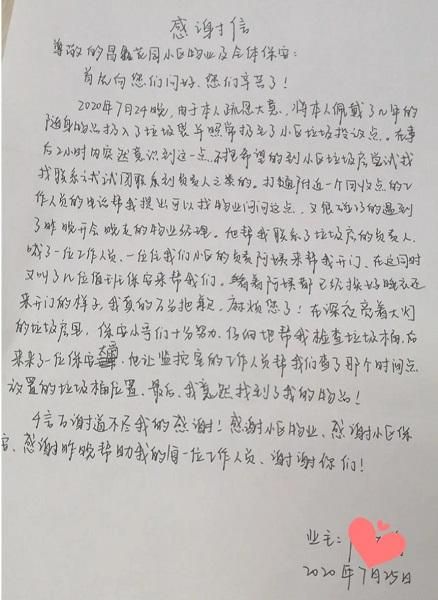 感谢信
尊敬的昌鑫花园小区物业及全体保安:
首先向您们问好,您们辛苦了!
2020年7月24晚,由于本人疏忽大意,将本人佩戴了几年的
随身物品扔入了垃圾袋并照常扔去了小区垃圾投放点。在事
后2小时内突然意识到这一点,不抱希望的到小区垃圾房尝试找
找联系试试团联系到负责人之类的。打通附近一个回收点的工
作人员的电话帮我提出可以找物业问问这点,又很凑巧的遇到
了昨晚开会晚走的物业经理。他帮我联系了垃圾房的负责人,
喊了一位工作人员,一位住我们小区的负责阿姨来帮我开门,在这同时
又叫了几位值班保安来帮我们。看着阿姨都已经换好睡衣还
来开门的样子,我真的万分抱歉,麻烦您了!在深夜亮着大灯
的垃圾房里,保安小哥们十分努力,仔细地帮我检查垃圾桶,后
来来了一位保安,他让监控室的工作人员帮我们查了那个时间点
放置的垃圾桶位置,最后,我竟然找到了我的物品!
千言万谢道不尽我的感谢!感谢小区物业、感谢小区保
安、感谢昨晚帮助我的每一位工作人员、谢谢你们!
业主:
2020年7月25日